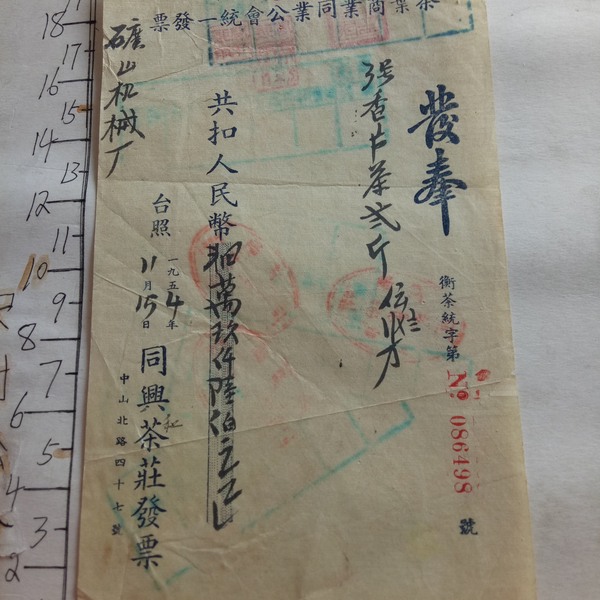 茶業商業同業公會統一發票
發奉
衡茶統字第
№ 086498
號
3号香片茶弍斤
共扣人民幣肆萬玖仟陸佰元正
台照
一九五4年
11月15日
同興茶莊發票
中山北路四十七號
礦山机械厂
18
17
16
15
14
13
12
11
10
9
8
7
6
5
4
3
2